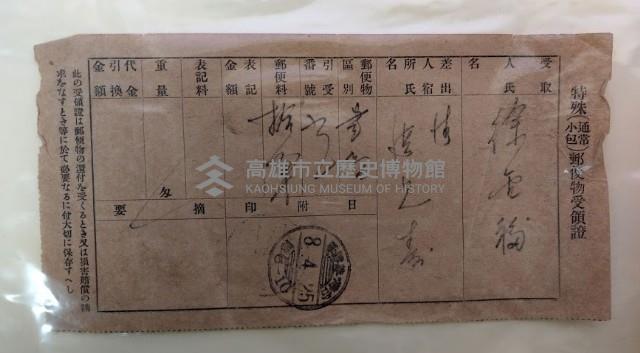 特殊(通常小包)郵便物受領證
受取人氏名
徐
差出人宿所氏名
郵便物區別
書
引受番號
郵便料
表記金額
表記料
重量
匁
代金引換金額
日附印
8.4.25
摘要
此の受領證は郵便物の還付を受くるとき又は損害賠償の請
求をなすとき等に於て必要なるに付大切に保存すへし
高雄市立歷史博物館
KAOHSIUNG MUSEUM OF HISTORY